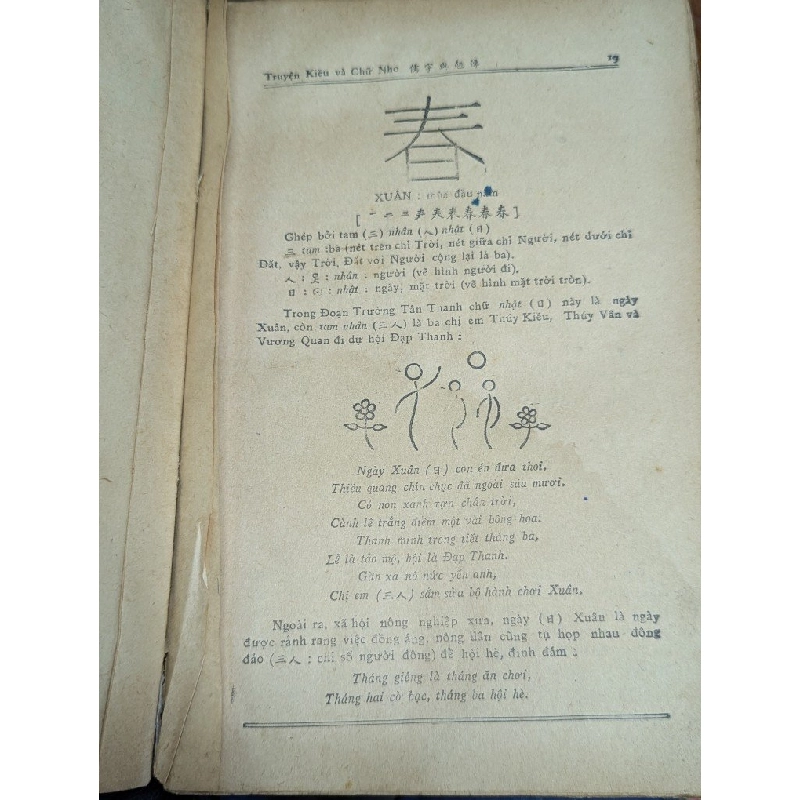 Truyện Kiều và Chữ Nho 儒字與翹傳
19
春
XUÂN : mùa đầu năm
[ 一 二 三 声 夫 未 春 春 春 ]
Ghép bởi tam (三) nhân (人) nhật (日)
三 tam :ba (nét trên chỉ Trời, nét giữa chỉ Người, nét dưới chỉ
Đất, vậy Trời, Đất với Người cộng lại là ba).
人 : : nhân : người (vẽ hình người đi).
日 : : nhật : ngày, mặt trời (vẽ hình mặt trời tròn).
Trong Đoạn Trường Tân Thanh chữ nhật (日) này là ngày
Xuân, còn tam nhân (三人) là ba chị em Thúy Kiều, Thúy Vân và
Vương Quan đi dự hội Đạp Thanh :
Ngày Xuân (日) con én đưa thoi,
Thiều quang chín chục đã ngoài sáu mươi.
Cỏ non xanh rợn chân trời,
Cành lê trắng điểm một vài bông hoa.
Thanh minh trong tiết tháng ba,
Lễ là tảo mộ, hội là Đạp Thanh.
Gần xa nô nức yến anh,
Chị em (三人) sắm sửa bộ hành chơi Xuân.
Ngoài ra, xã hội nông nghiệp xưa, ngày (日) Xuân là ngày
được rảnh rang việc đồng áng, nông dân cũng tụ họp nhau đông
đảo (三人 : chỉ số người đông) để hội hè, đình đám :
Tháng giêng là tháng ăn chơi,
Tháng hai cờ bạc, tháng ba hội hè.